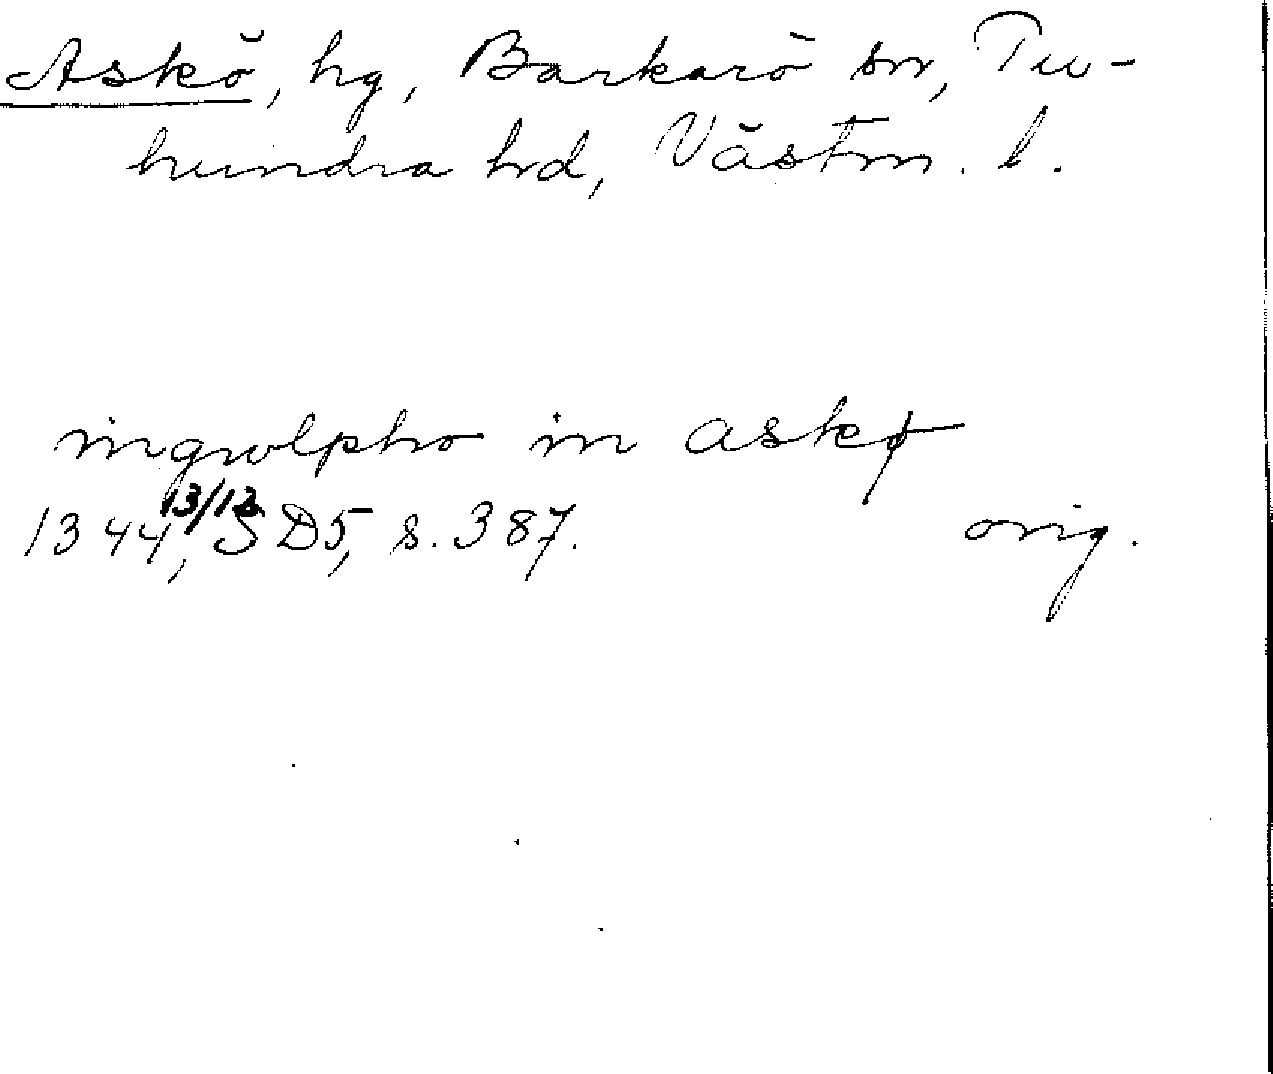 Askö, hg, Barkarö sn, Tu-
hundra hd, Västm. l.
ingwolpho in askø
1344 13/12, SD5, s. 387. orig.